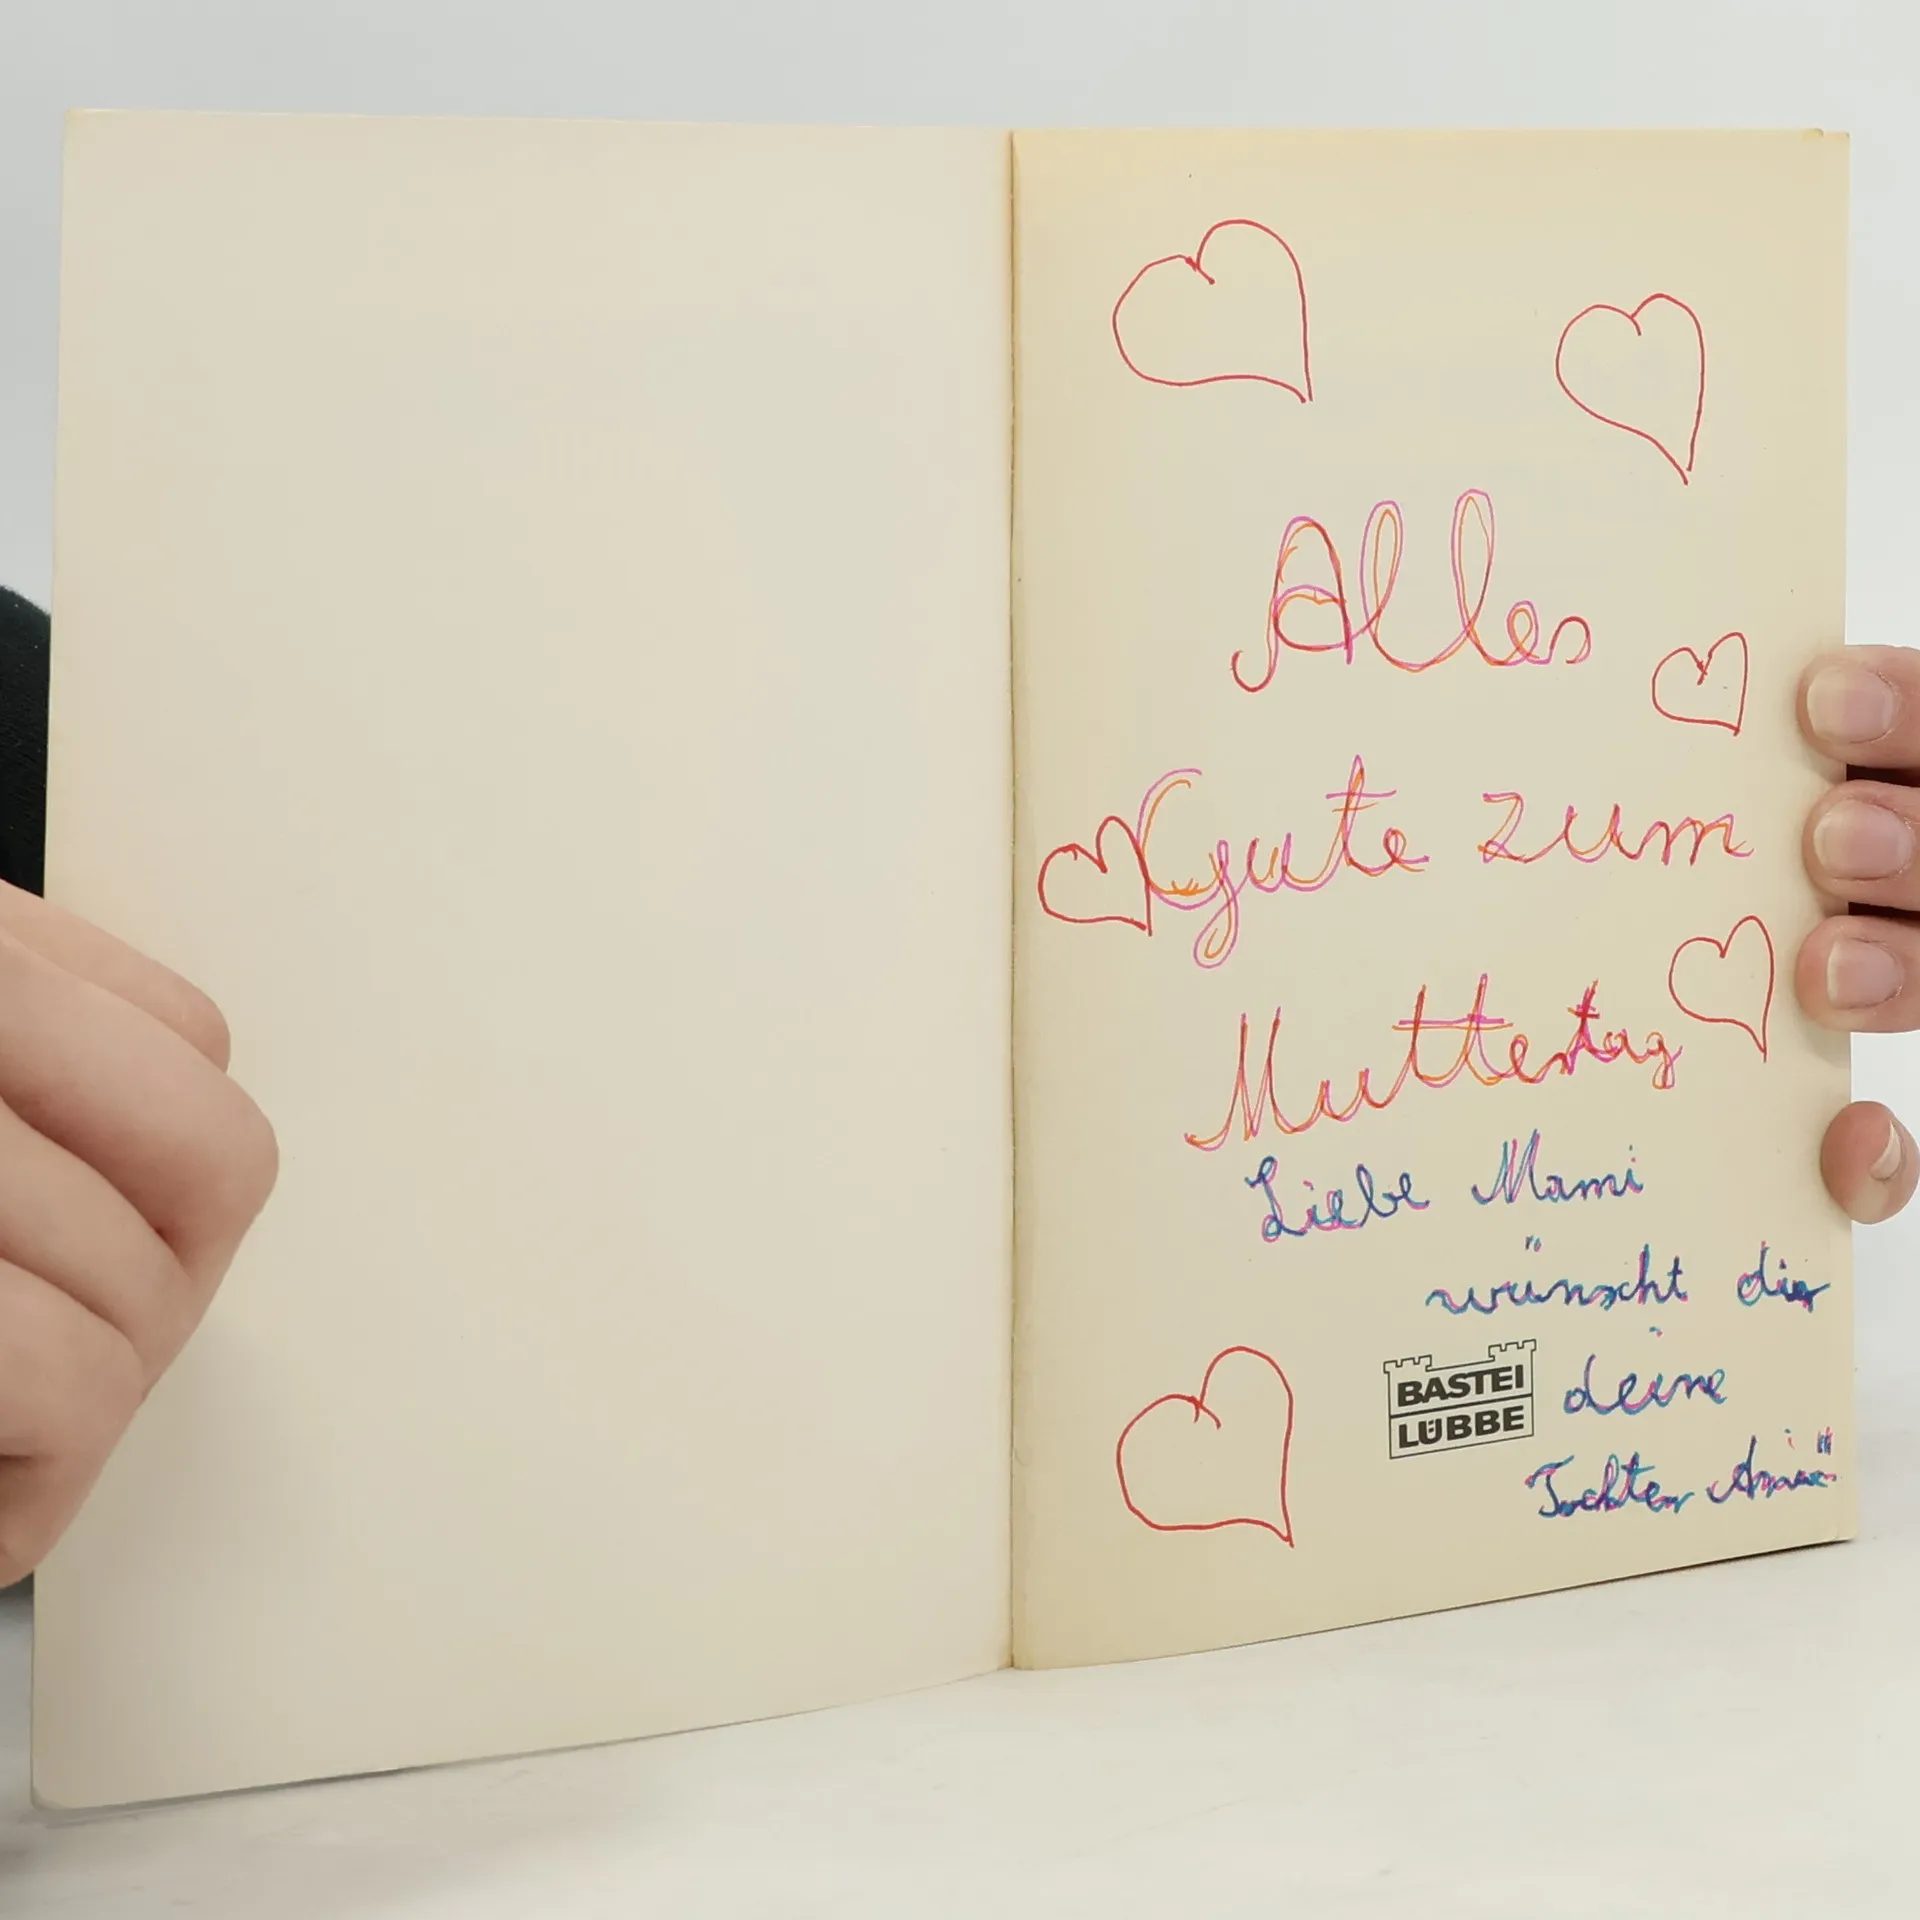 Alles
Gute zum
Muttertag
Liebe Mami
wünscht dir
BASTEI
LÜBBE
deine
Tochter